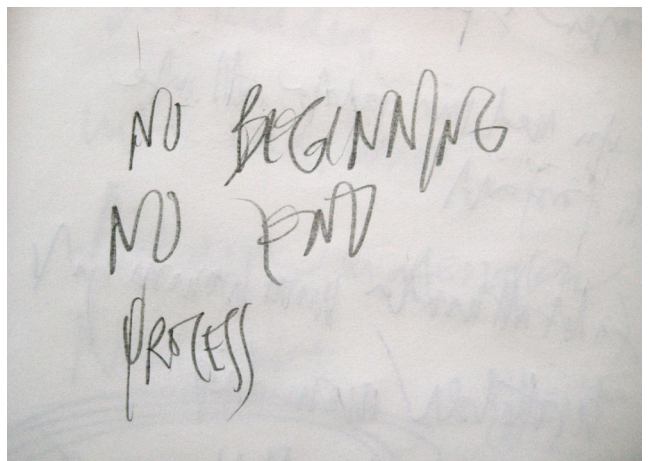 NO BEGINNING
NO END
PROCESS